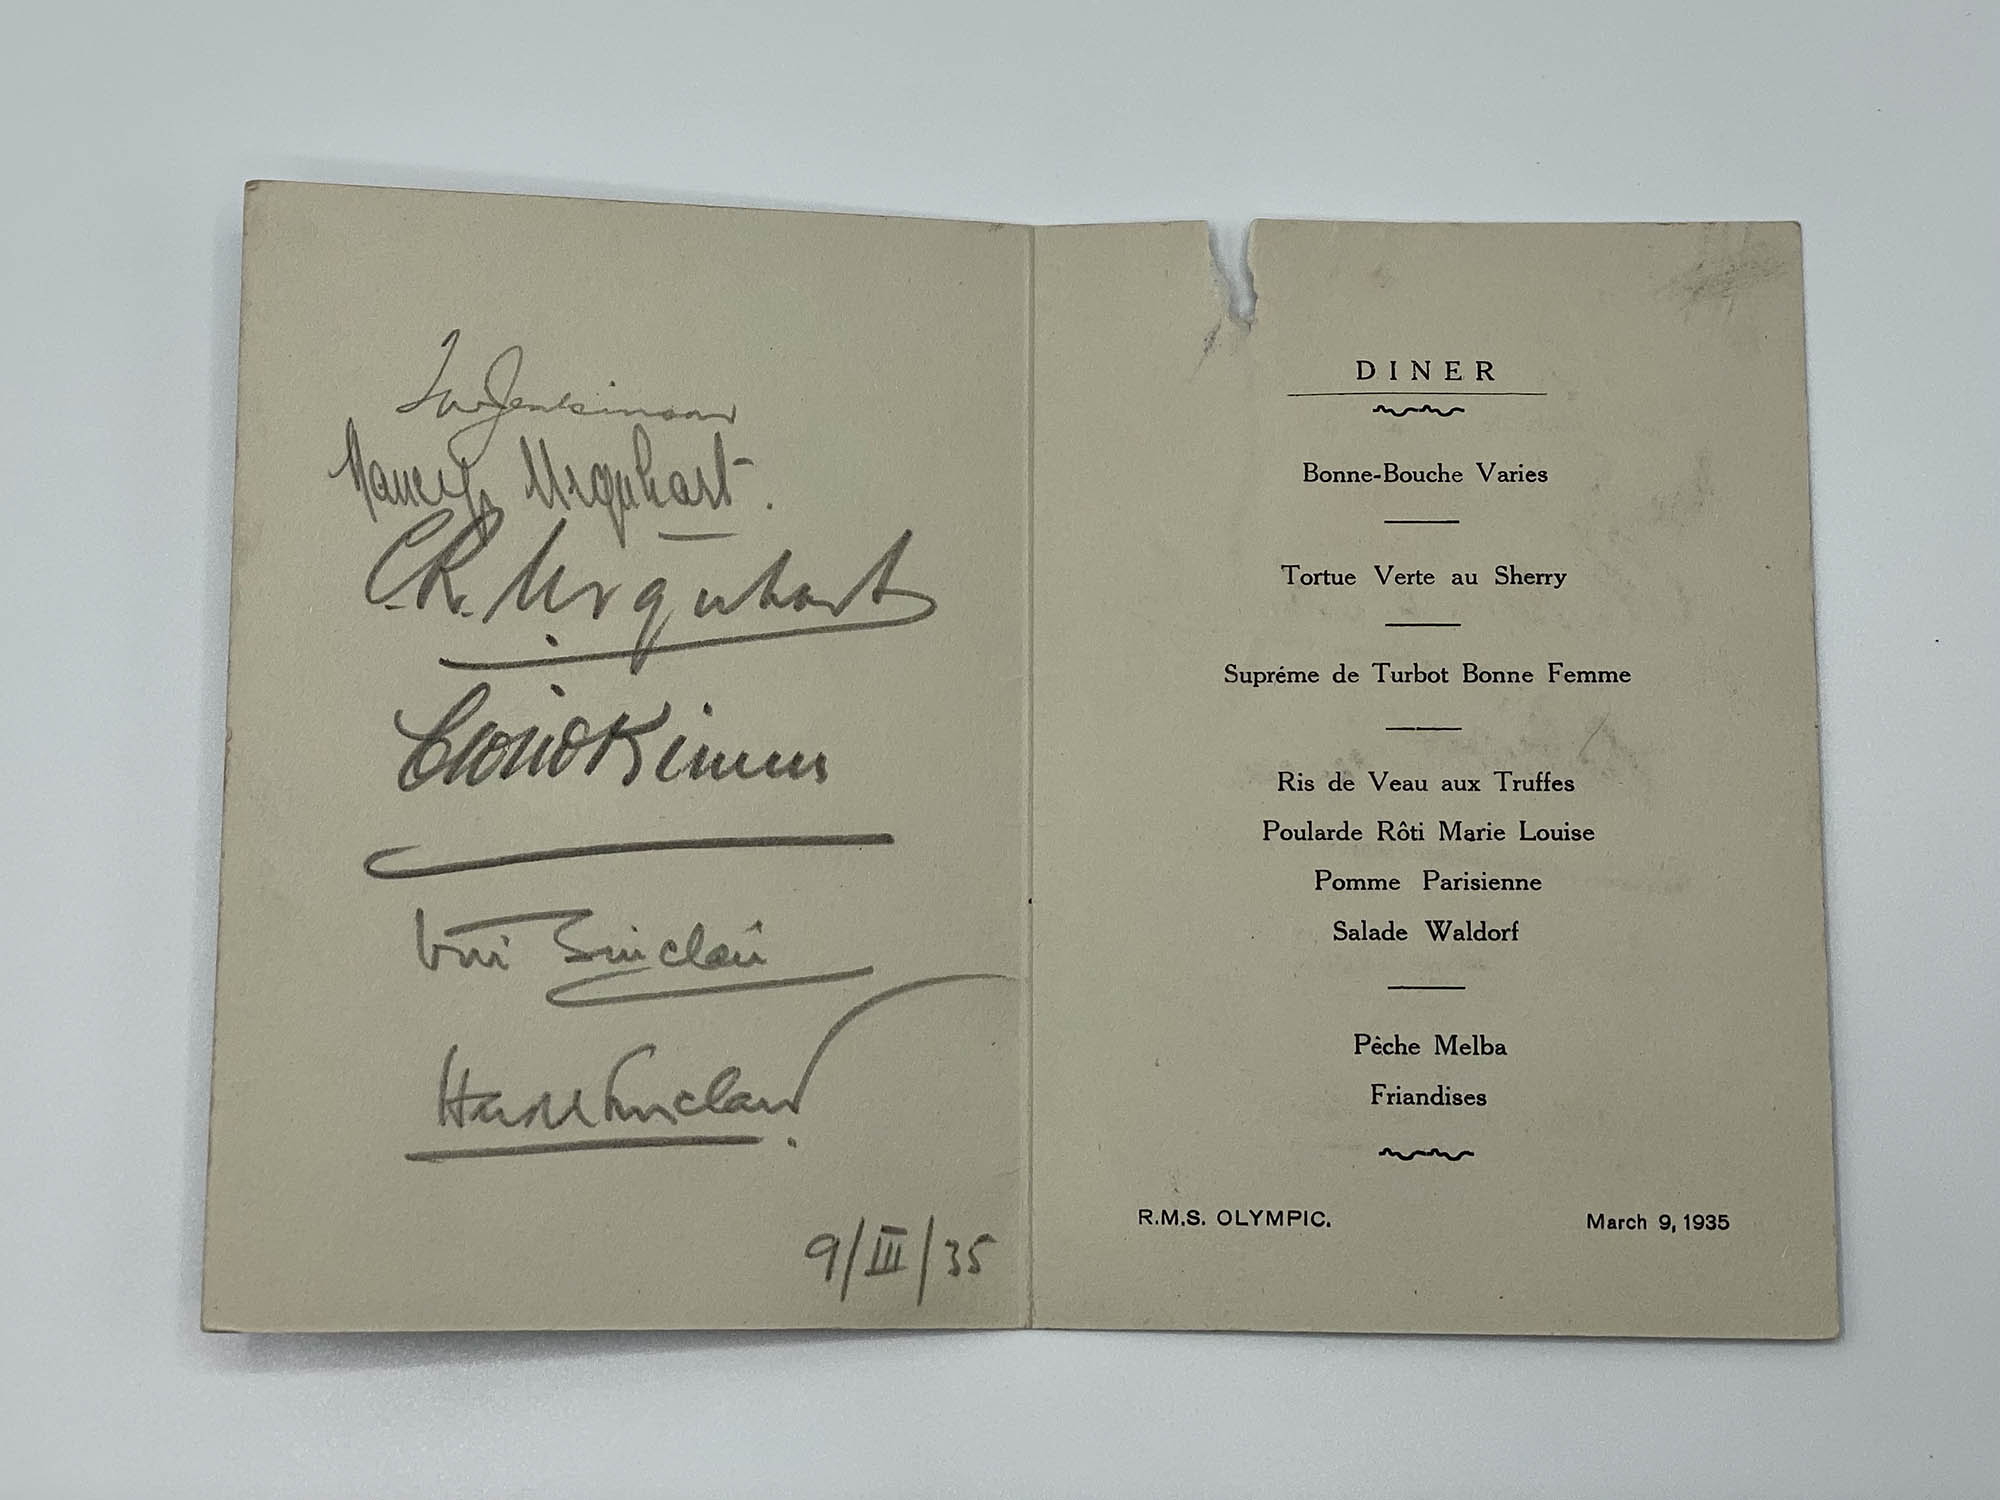 Jenkinson
Nancy Urquhart.
C.R. Urquhart
Sinclair
Sinclair
9/III/35
DINER
Bonne-Bouche Varies
Tortue Verte au Sherry
Supréme de Turbot Bonne Femme
Ris de Veau aux Truffes
Poularde Rôti Marie Louise
Pomme Parisienne
Salade Waldorf
Pêche Melba
Friandises
R.M.S. OLYMPIC.
March 9, 1935